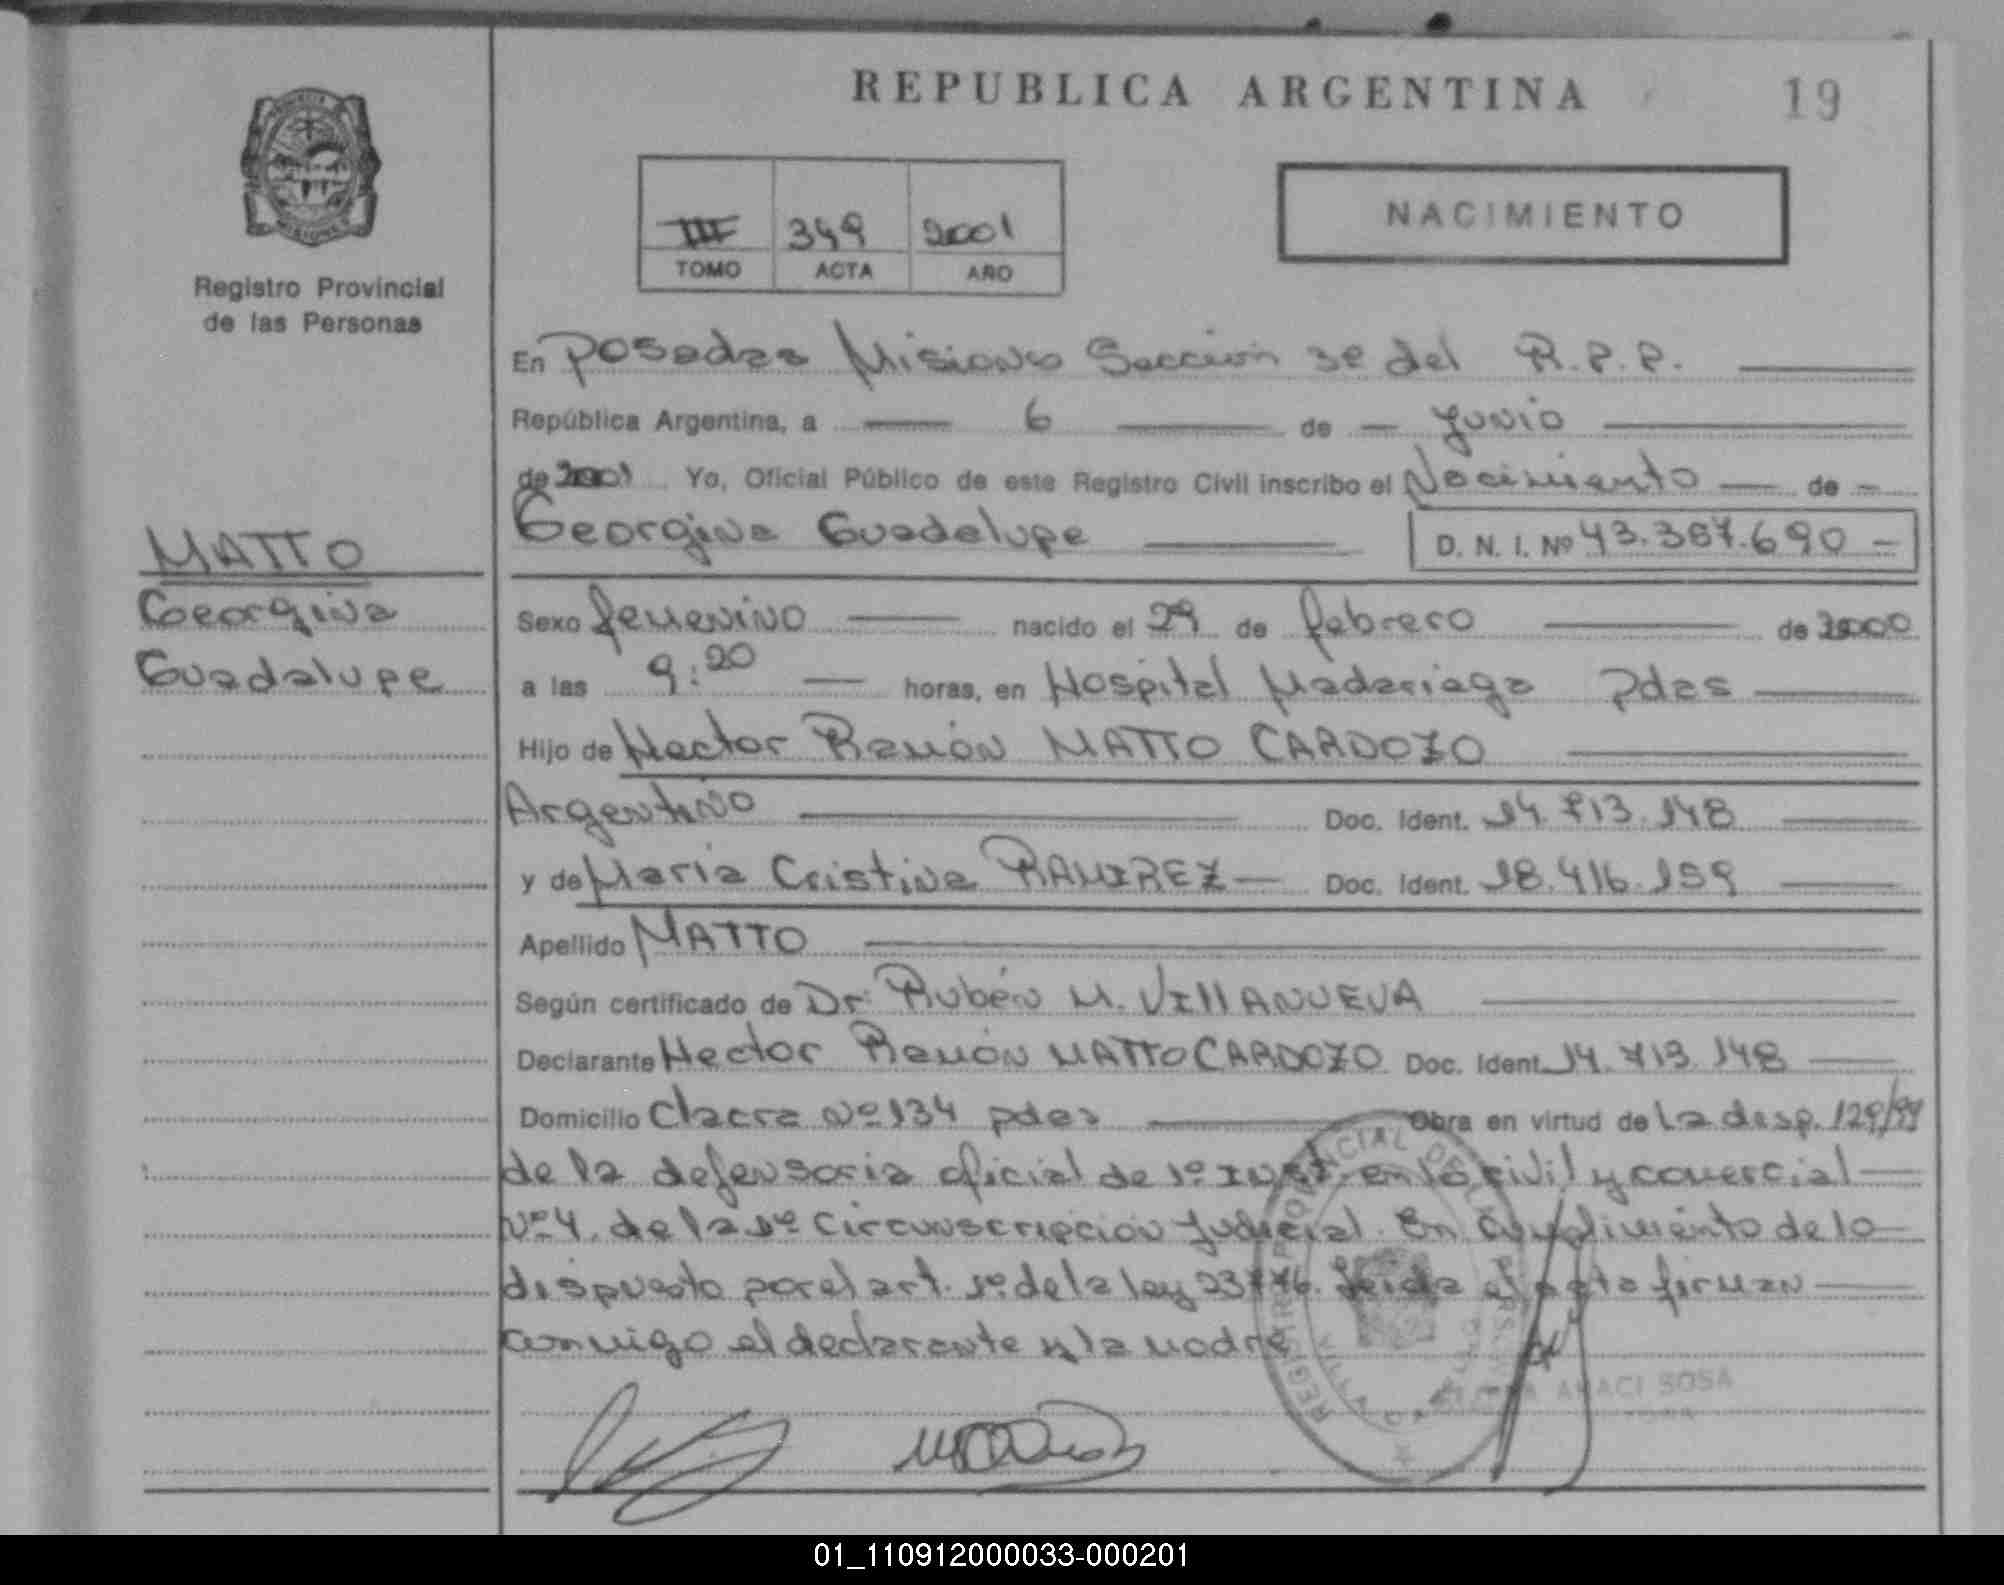 REPUBLICA ARGENTINA
19
Registro Provincial
de las Personas
III 349 2001
TOMO ACTA AÑO
NACIMIENTO
En Posadas Misiones Sección 3ª del R.P.P.
República Argentina, a 6 de Junio
de 2001 Yo, Oficial Público de este Registro Civil inscribo el Nacimiento de
Georgina Guadalupe D. N. I. Nº 43.387.690
MATTO
Georgina
Guadalupe
Sexo femenino nacido el 29 de febrero de 2000
a las 9:20 horas, en Hospital Madariaga Pdas
Hijo de Hector Ramón MATTO CARDOZO
Argentino Doc. Ident. 14.713.148
y de María Cristina RAMIREZ Doc. Ident. 18.416.159
Apellido MATTO
Según certificado de Dr. Rubén M. VILLANUEVA
Declarante Hector Ramón MATTO CARDOZO Doc. Ident. 14.713.148
Domicilio Chacra Nº 134 pdas Obra en virtud de La disp. 129/99
de la defensoria oficial de 1º Inst. en lo civil y comercial
Nº 4. de la 1º circunscripcion Judicial. En cumplimiento de lo
dispuesto por el art. 1º de la ley 23776. Leida el acta firman
conmigo el declarante y la madre
REGISTRO PROVINCIAL DE
ARACI SOSA
01_110912000033-000201